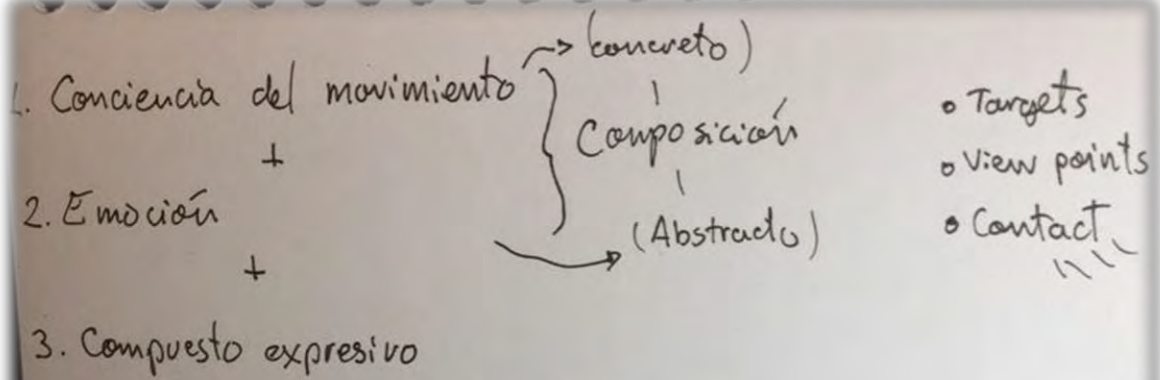 1. Conciencia del movimiento
+
2. Emoción
+
3. Compuesto expresivo
(concreto)
Composición
(Abstracto)
• Targets
• View points
• Contact